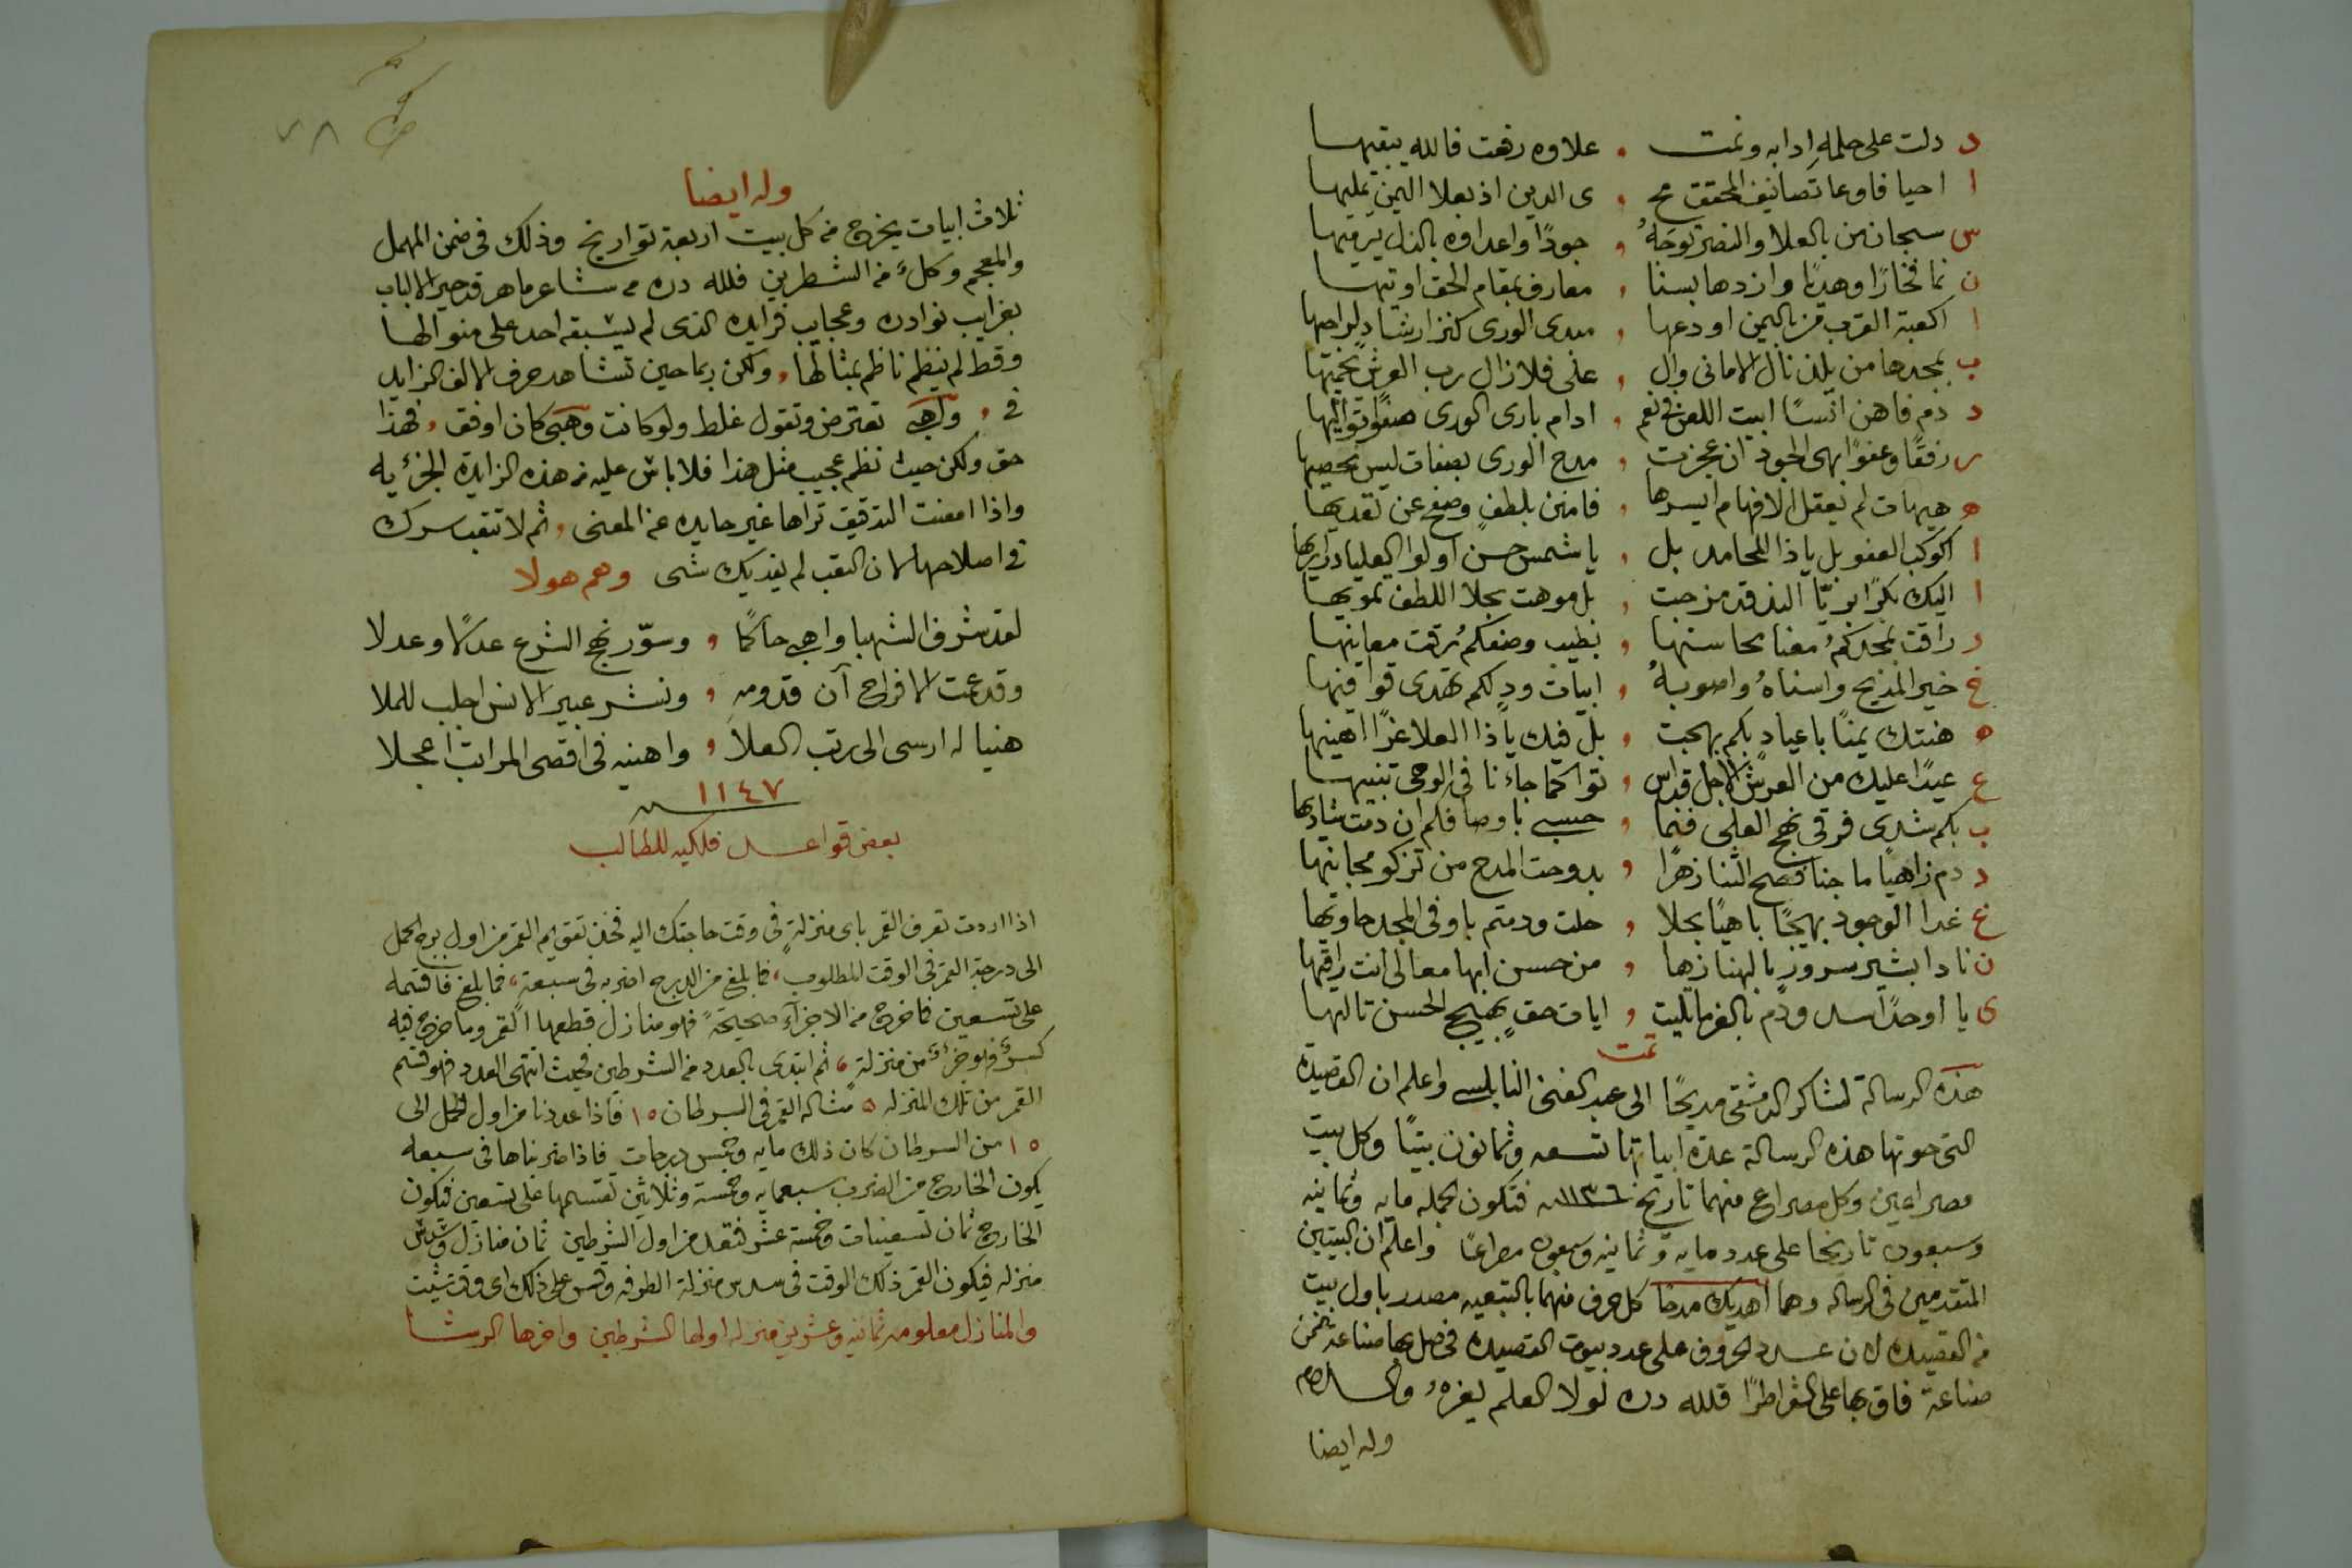 د دلت على حلمه ادابه ونمت ، علاوه زهت فالله يبقيها
ا احيا فاوعا تصانيف المحقق مح ، ى الدين اذ بعلا اليمن يمليها
س سبحان من بالعلا والنصر توجه ، جودًا واعداوه بالذل يرميها
ن نما فخارًا وهديًا وازدها بسنا ، معارف بمقام الحق اوتيها
ا اكعبة القرب من باليمن اودعها ، مبدى الورى كنز ارشاد لراجيها
ب بمجدها من يلذ نال الامانى وال ، على فلا زال رب العرش يحميها
د دم فاهن انسًا ابيت اللعن فى نعم ، ادام بارى الورى صفوًا تواليها
ر رفقًا وعفوًا بهى الجود ان عجزت ، مدح الورى بصفات ليس نحصيها
ه هيهات لم تعقل الافهام ايسرها ، فامنن بلطف وصفح عن تعديها
ا اكوكب العفو بل ياذا المحامد بل ، يا شمس حسن اولوا العليا دراريها
ا اليك بكرًا بريّا الند قد مزجت ، بل موهت بجلا اللطف تمويها
ر راقت بمجدكم معنا محاسنها ، بطيب وصفكم رقت معانيها
خ خير المديح واسناه واصوبه ، ابيات ود لكم تهدى قوافيها
ه هنتك يمنًا باعياد بكم بهجت ، بل فيك ياذا العلا عزًا اهنيها
ع عيدًا عليك من العرش الاجل قداس ، توا كما جاءنا فى الوحى تنبيها
ب بكم شدى فرقى نهج العلى فنما ، حسبى باوصافكم ان دمت شاديها
د دم زاهيًا ما جنا فصح الثنا زهرًا ، بدوحت المدح من تزكو مجانيها
غ غدا الوجود بهيجًا باهيًا بجلا ، حلت ودمتم باوفى المجد حاويها
ن نادا بشير سرور بالهنا زها ، من حسن ابها معالى انت راقيها
ى يا اوحدًا سد ودم بالعز ما تليت ، ايات حق بهيج الحسن تاليها
تمت
هذه الرسالة لشاكر الدمشقى مديحًا الى عبد الغنى النابلسى واعلم ان القصيدة
التى حوتها هذه الرسالة عدة ابياتها تسعه وثمانون بيتًا وكل بيت
مصراعين وكل مصراع منهما تاريخ ١١٣٦ فتكون الجمله مايه وثمانيه
وسبعون تاريخا على عدد مايه وثمانيه وسبعون مصراعًا واعلم ان البيتين
المتقدمين فى الرساله وهما اهديك مدحًا كل حرف منهما بالتبعيه مصدر باول بيت
من القصيده لان عدد الحروف على عدد بيوت القصيده فحصل بها صناعه ضمن
صناعة فاق بها على الشعر اطرًا فلله دره لولا العلم يغزه والسلام
وله ايضا
٧٨
وله ايضا
ثلاث ابيات يخرج من كل بيت اربعة تواريخ وذلك فى ضمن المهمل
والمعجم وكلٌ من الشطرين فلله دره من شاعر ماهر قد حير الالباب
بغرايب نوادره وعجايب فرايده الذى لم يسبقه احد على منوالها
وقط لم ينظم ناظم بمثالها ، ولكن ربما حين تشاهد حرف الالف الزايد
فى ، واهبى تعترض وتقول غلط ولو كانت وهبى كان اوفق ، فهذا
حق ولكن حيث نظم عجيب مثل هذا فلا باس عليه من هذه الزايدة الجزئيه
واذا امعنت التدقيق تراها غير حايده عن المعنى ، ثم لا تتعب سرك
فى اصلاحها لان التعب لم يفديك شى وهم هولا
لقد شرف الشهبا واهبى حاكمًا ، وسوّر نهج الشرع عدلًا وعدلا
وقد عمت الافراح آن قدومه ، ونشر عبير الانس اجلب للملا
هنيا له ارسى الى رتب العلا ، واهنيه فى اقصى المراتب اعجلا
١١٤٧
بعض قواعد فلكيه للطالب
اذا اردت تعرف القمر باى منزلةٍ فى وقت حاجتك اليه فخذ تقويم القمر من اول برج الحمل
الى درجة القمر فى الوقت المطلوب ، فما بلغ من الدرج اضربه فى سبعة ، فما بلغ فاقسمه
على تسعين فما خرج من الاجزآء صحيحة فهو منازل قطعها القمر وما خرج فيه
كسرٌ فهو جزءٌ من منزلة ، ثم ابتدى بالعدد من الشرطين فحيث انتهى العدد فهو قسم
القمر من تلك المنزله ه مثاله القمر فى السرطان ١٥ فاذا عددنا من اول الحمل الى
١٥ من السرطان كان ذلك مايه وخمس درجات فاذا ضربناها فى سبعه
يكون الخارج من الضرب سبعمايه وخمسة وثلاثين نقسمها على تسعين فيكون
الخارج ثمان تسعينات وخمسة عشر فنعد من اول الشرطين ثمان منازل وسدس
منزله فيكون القمر ذلك الوقت فى سدس منزلة الطرفه وقس على ذلك اى وقت شيت
والمنازل معلومه ثمانيه وعشرين منزله اولها الشرطين واخرها الرشا